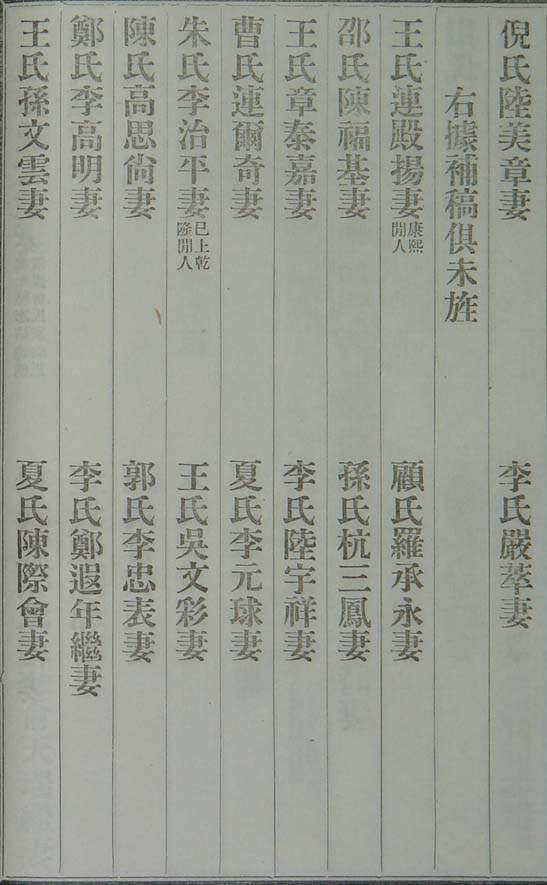 倪氏陸美章妻　李氏嚴萃妻
右據補稿俱未旌
王氏連殿揚妻康熙閒人　顧氏羅承永妻
邵氏陳福基妻　孫氏杭三鳳妻
王氏章泰嘉妻　李氏陸宇祥妻
曹氏連爾奇妻　夏氏李元球妻
朱氏李治平妻已上乾隆閒人　王氏吳文彩妻
陳氏高思尙妻　郭氏李忠表妻
鄭氏李高明妻　李氏鄭遐年繼妻
王氏孫文雲妻　夏氏陳際會妻